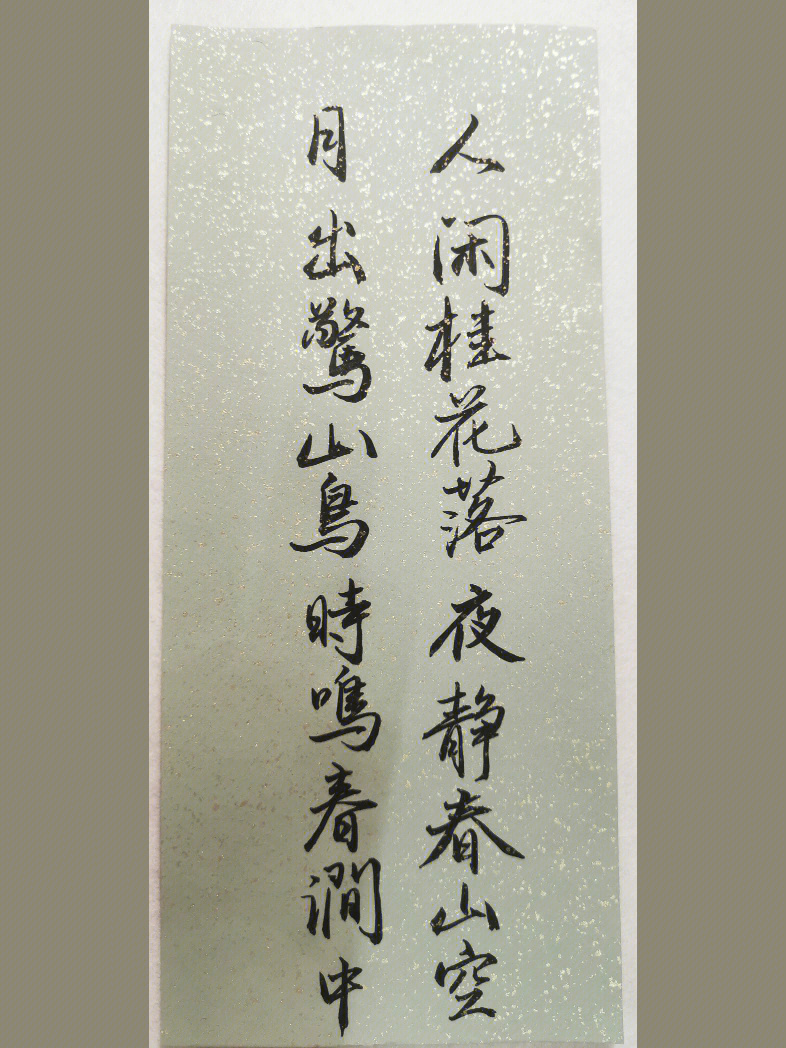 人闲桂花落夜静春山空
月出驚山鳥時鳴春澗中